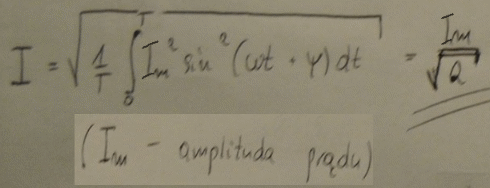 I = √(1/T ∫₀ᵀ Iₘ² sin² (ωt + ψ) dt) = Iₘ/√2
(Iₘ - amplituda prądu)